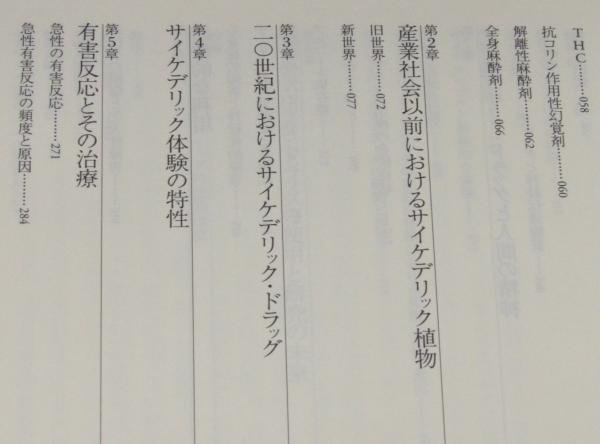 THC………058
抗コリン作用性幻覚剤………060
解離性麻酔剤………062
全身麻酔剤………066
第2章
産業社会以前におけるサイケデリック植物
旧世界………072
新世界………077
第3章
二〇世紀におけるサイケデリック・ドラッグ
第4章
サイケデリック体験の特性
第5章
有害反応とその治療
急性の有害反応………271
急性有害反応の頻度と原因………284